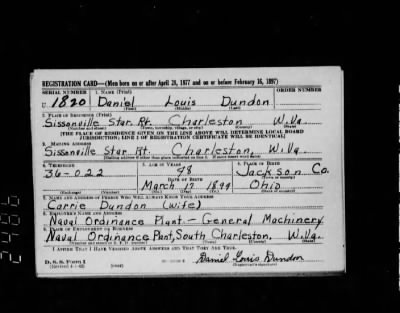 REGISTRATION CARD—(Men born on or after April 28, 1877 and on or before February 16, 1897)
SERIAL NUMBER 1. NAME (Print) ORDER NUMBER
U 1820 Daniel Louis Dundon
(First) (Middle) (Last)
2. PLACE OF RESIDENCE (Print)
Sissonville Star. Rt. Charleston W.Va.
(Number and street) (Town, township, village, or city) (County) (State)
[THE PLACE OF RESIDENCE GIVEN ON THE LINE ABOVE WILL DETERMINE LOCAL BOARD
JURISDICTION; LINE 2 OF REGISTRATION CERTIFICATE WILL BE IDENTICAL]
3. MAILING ADDRESS
Sissonville Star Rt. Charleston, W.Va.
[Mailing address if other than place indicated on line 2. If same insert word same]
4. TELEPHONE 5. AGE IN YEARS 6. PLACE OF BIRTH
36-022 48 Jackson Co.
DATE OF BIRTH (Town or county)
March 17 1894 Ohio
(Exchange) (Number) (Mo.) (Day) (Yr.) (State or country)
7. NAME AND ADDRESS OF PERSON WHO WILL ALWAYS KNOW YOUR ADDRESS
Carrie Dundon (Wife)
8. EMPLOYER'S NAME AND ADDRESS
Naval Ordinance Plant — General Machinery
9. PLACE OF EMPLOYMENT OR BUSINESS
Naval Ordinance Plant, South Charleston, W.Va.
(Number and street or R. F. D. number) (Town) (County) (State)
I AFFIRM THAT I HAVE VERIFIED ABOVE ANSWERS AND THAT THEY ARE TRUE.
D. S. S. Form 1 Daniel Louis Dundon
(Revised 4-1-42) (over) (Registrant's signature)